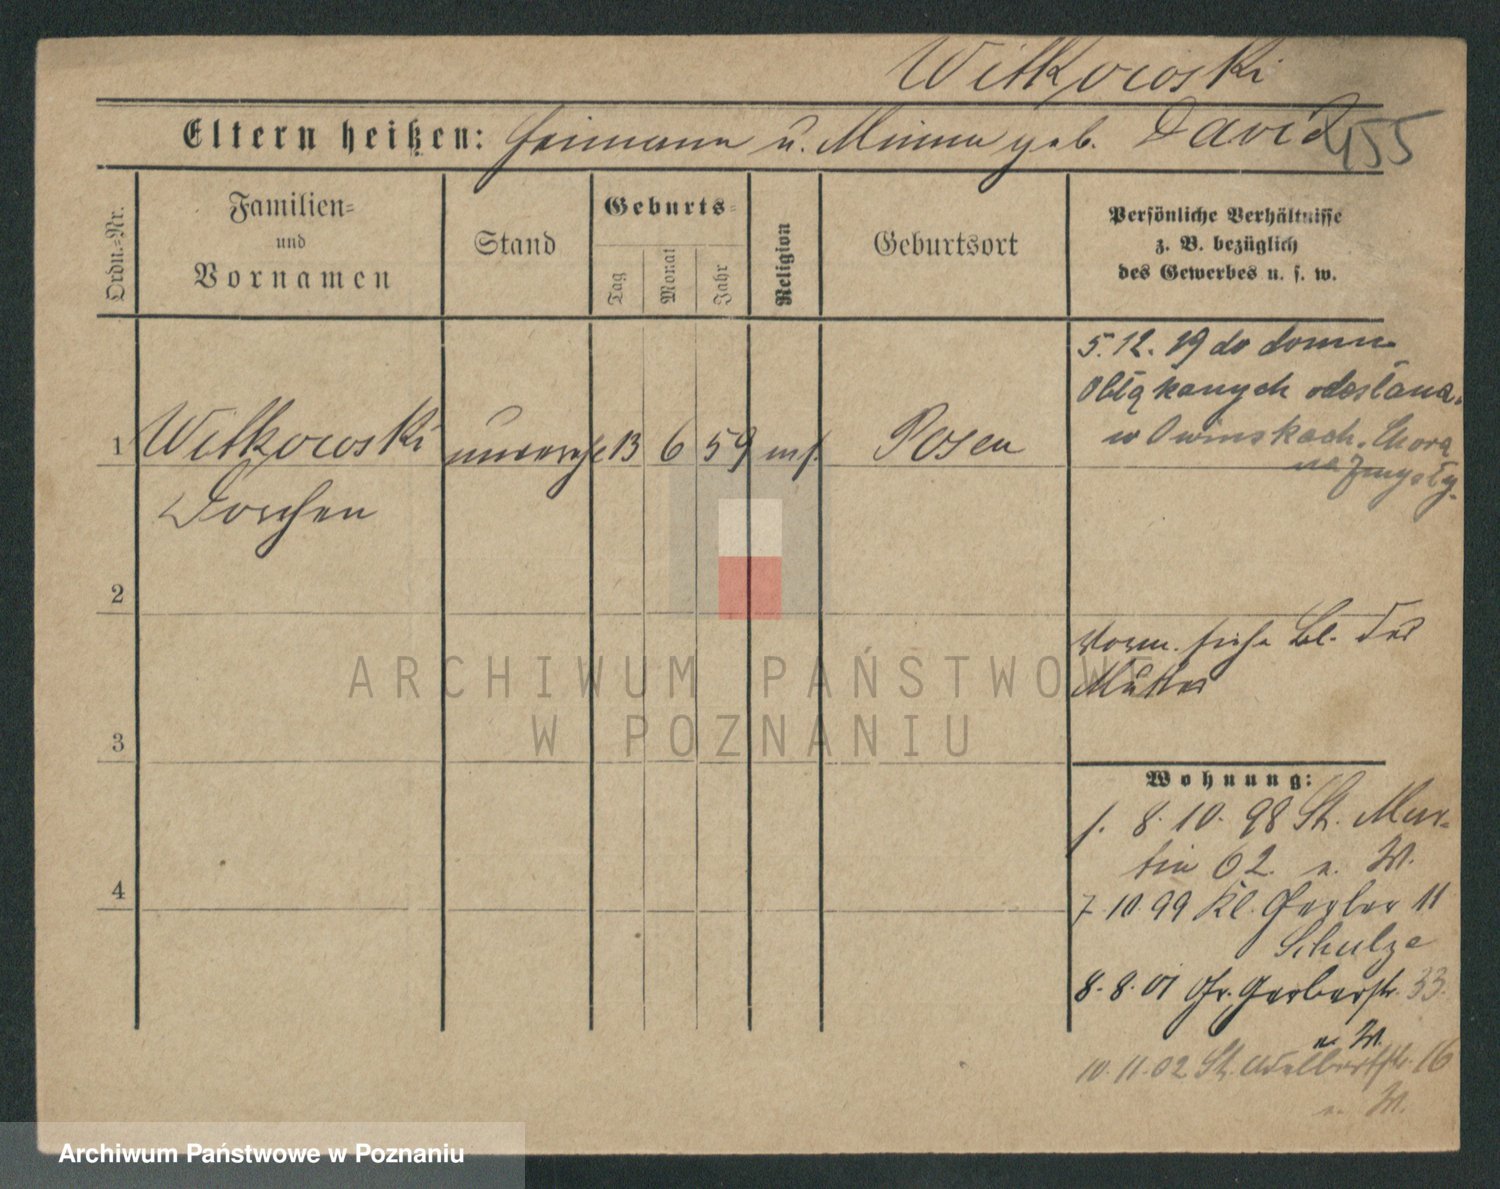 Witkowski
Eltern heißen: Heimann u. Minna geb. David
455
Ordn.=Nr.
Familien=
und
Vornamen
Stand
Geburts=
Tag
Monat
Jahr
Religion
Geburtsort
Persönliche Verhältnisse
z. B. bezüglich
des Gewerbes u. s. w.
5.12.19 do domu
Obłąkanych odesłana
w Owinskach. Chora
na Zmysły.
1 Witkowski unvereh 13 6 59 mos. Posen
Dorchen
2
Vorm. siehe Bl. der
Mutter
3
Wohnung:
8.10.98 St. Mar-
tin 62. W.
4
7.10.99 Kl. Gerber 11
Schulze
8.8.01 Gr. Gerberstr. 33.
W.
10.11.02 St. Adalbertstr. 16
W.
ARCHIWUM PAŃSTWOWE
W POZNANIU
Archiwum Państwowe w Poznaniu